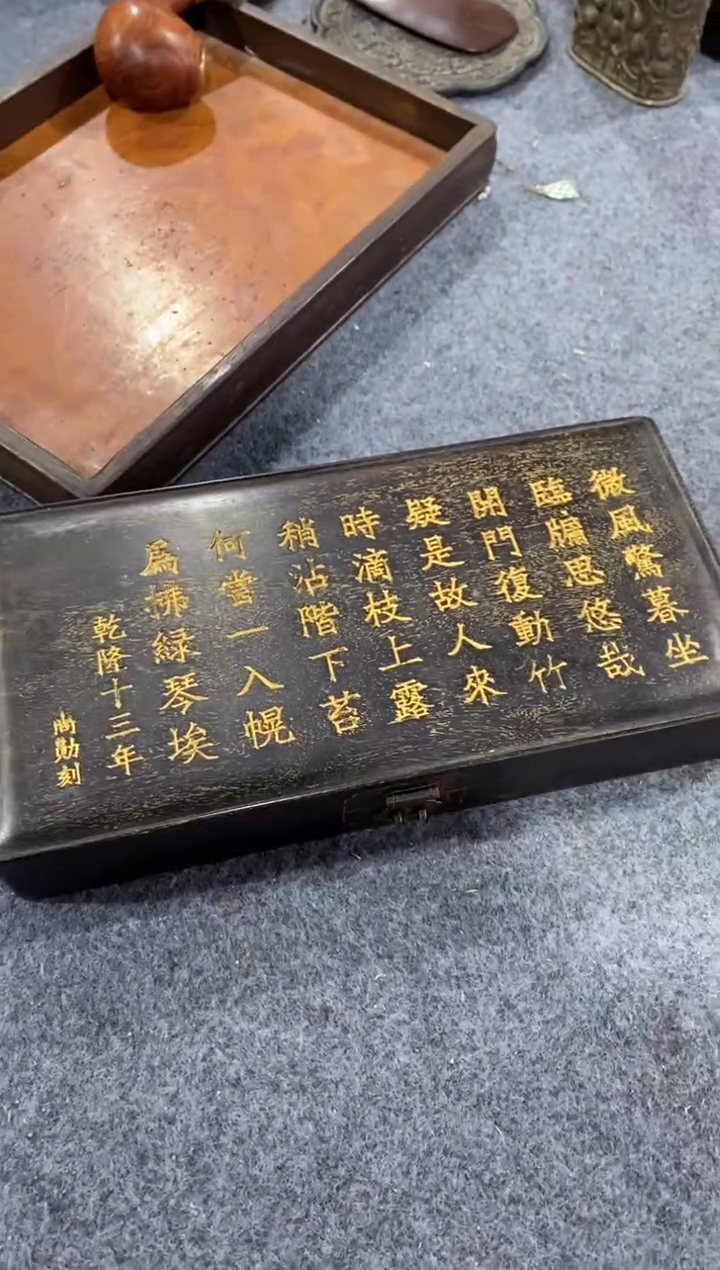 微風驚暮坐
臨牖思悠哉
開門復動竹
疑是故人來
時滴枝上露
稍沾階下苔
何當一入幌
爲拂緑琴埃
乾隆十三年
尚勛刻